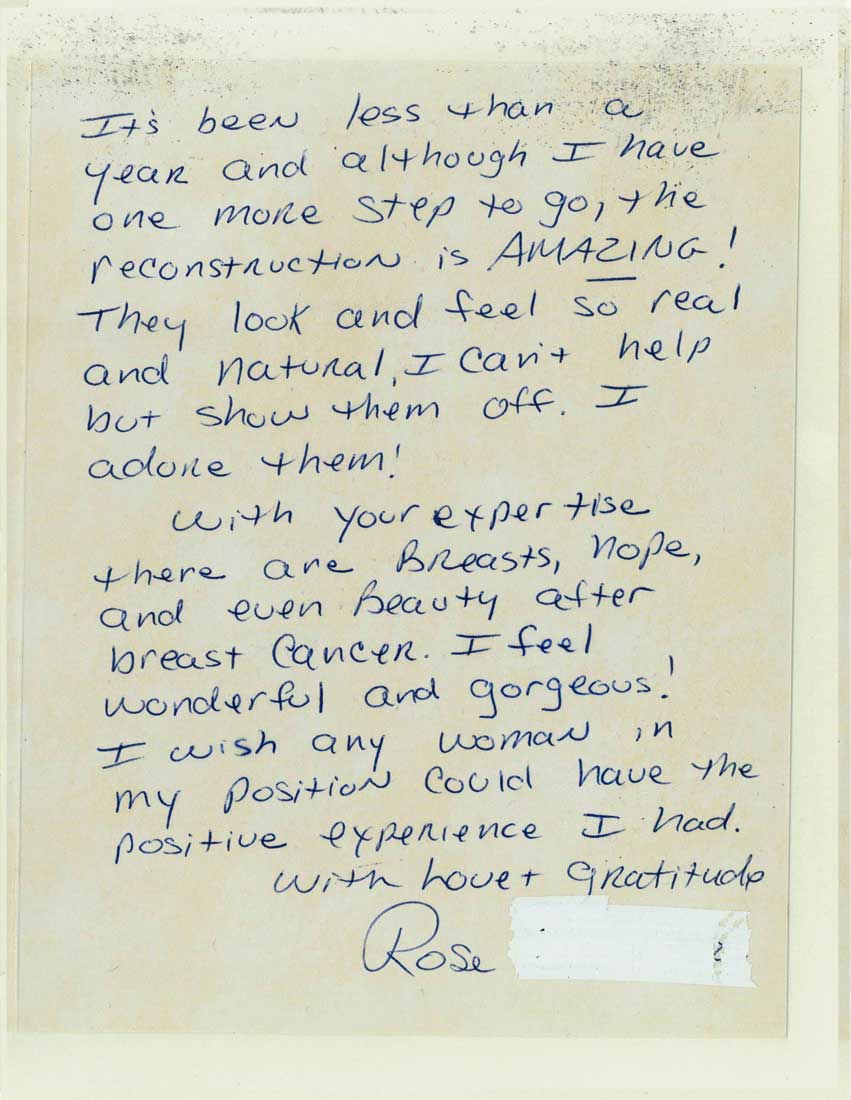 It's been less than a
year and although I have
one more step to go, the
reconstruction is AMAZING!
They look and feel so real
and natural, I can't help
but show them off. I
adore them!
With your expertise
there are Breasts, hope,
and even Beauty after
breast Cancer. I feel
wonderful and gorgeous!
I wish any woman in
my position could have the
positive experience I had.
With Love + Gratitude
Rose